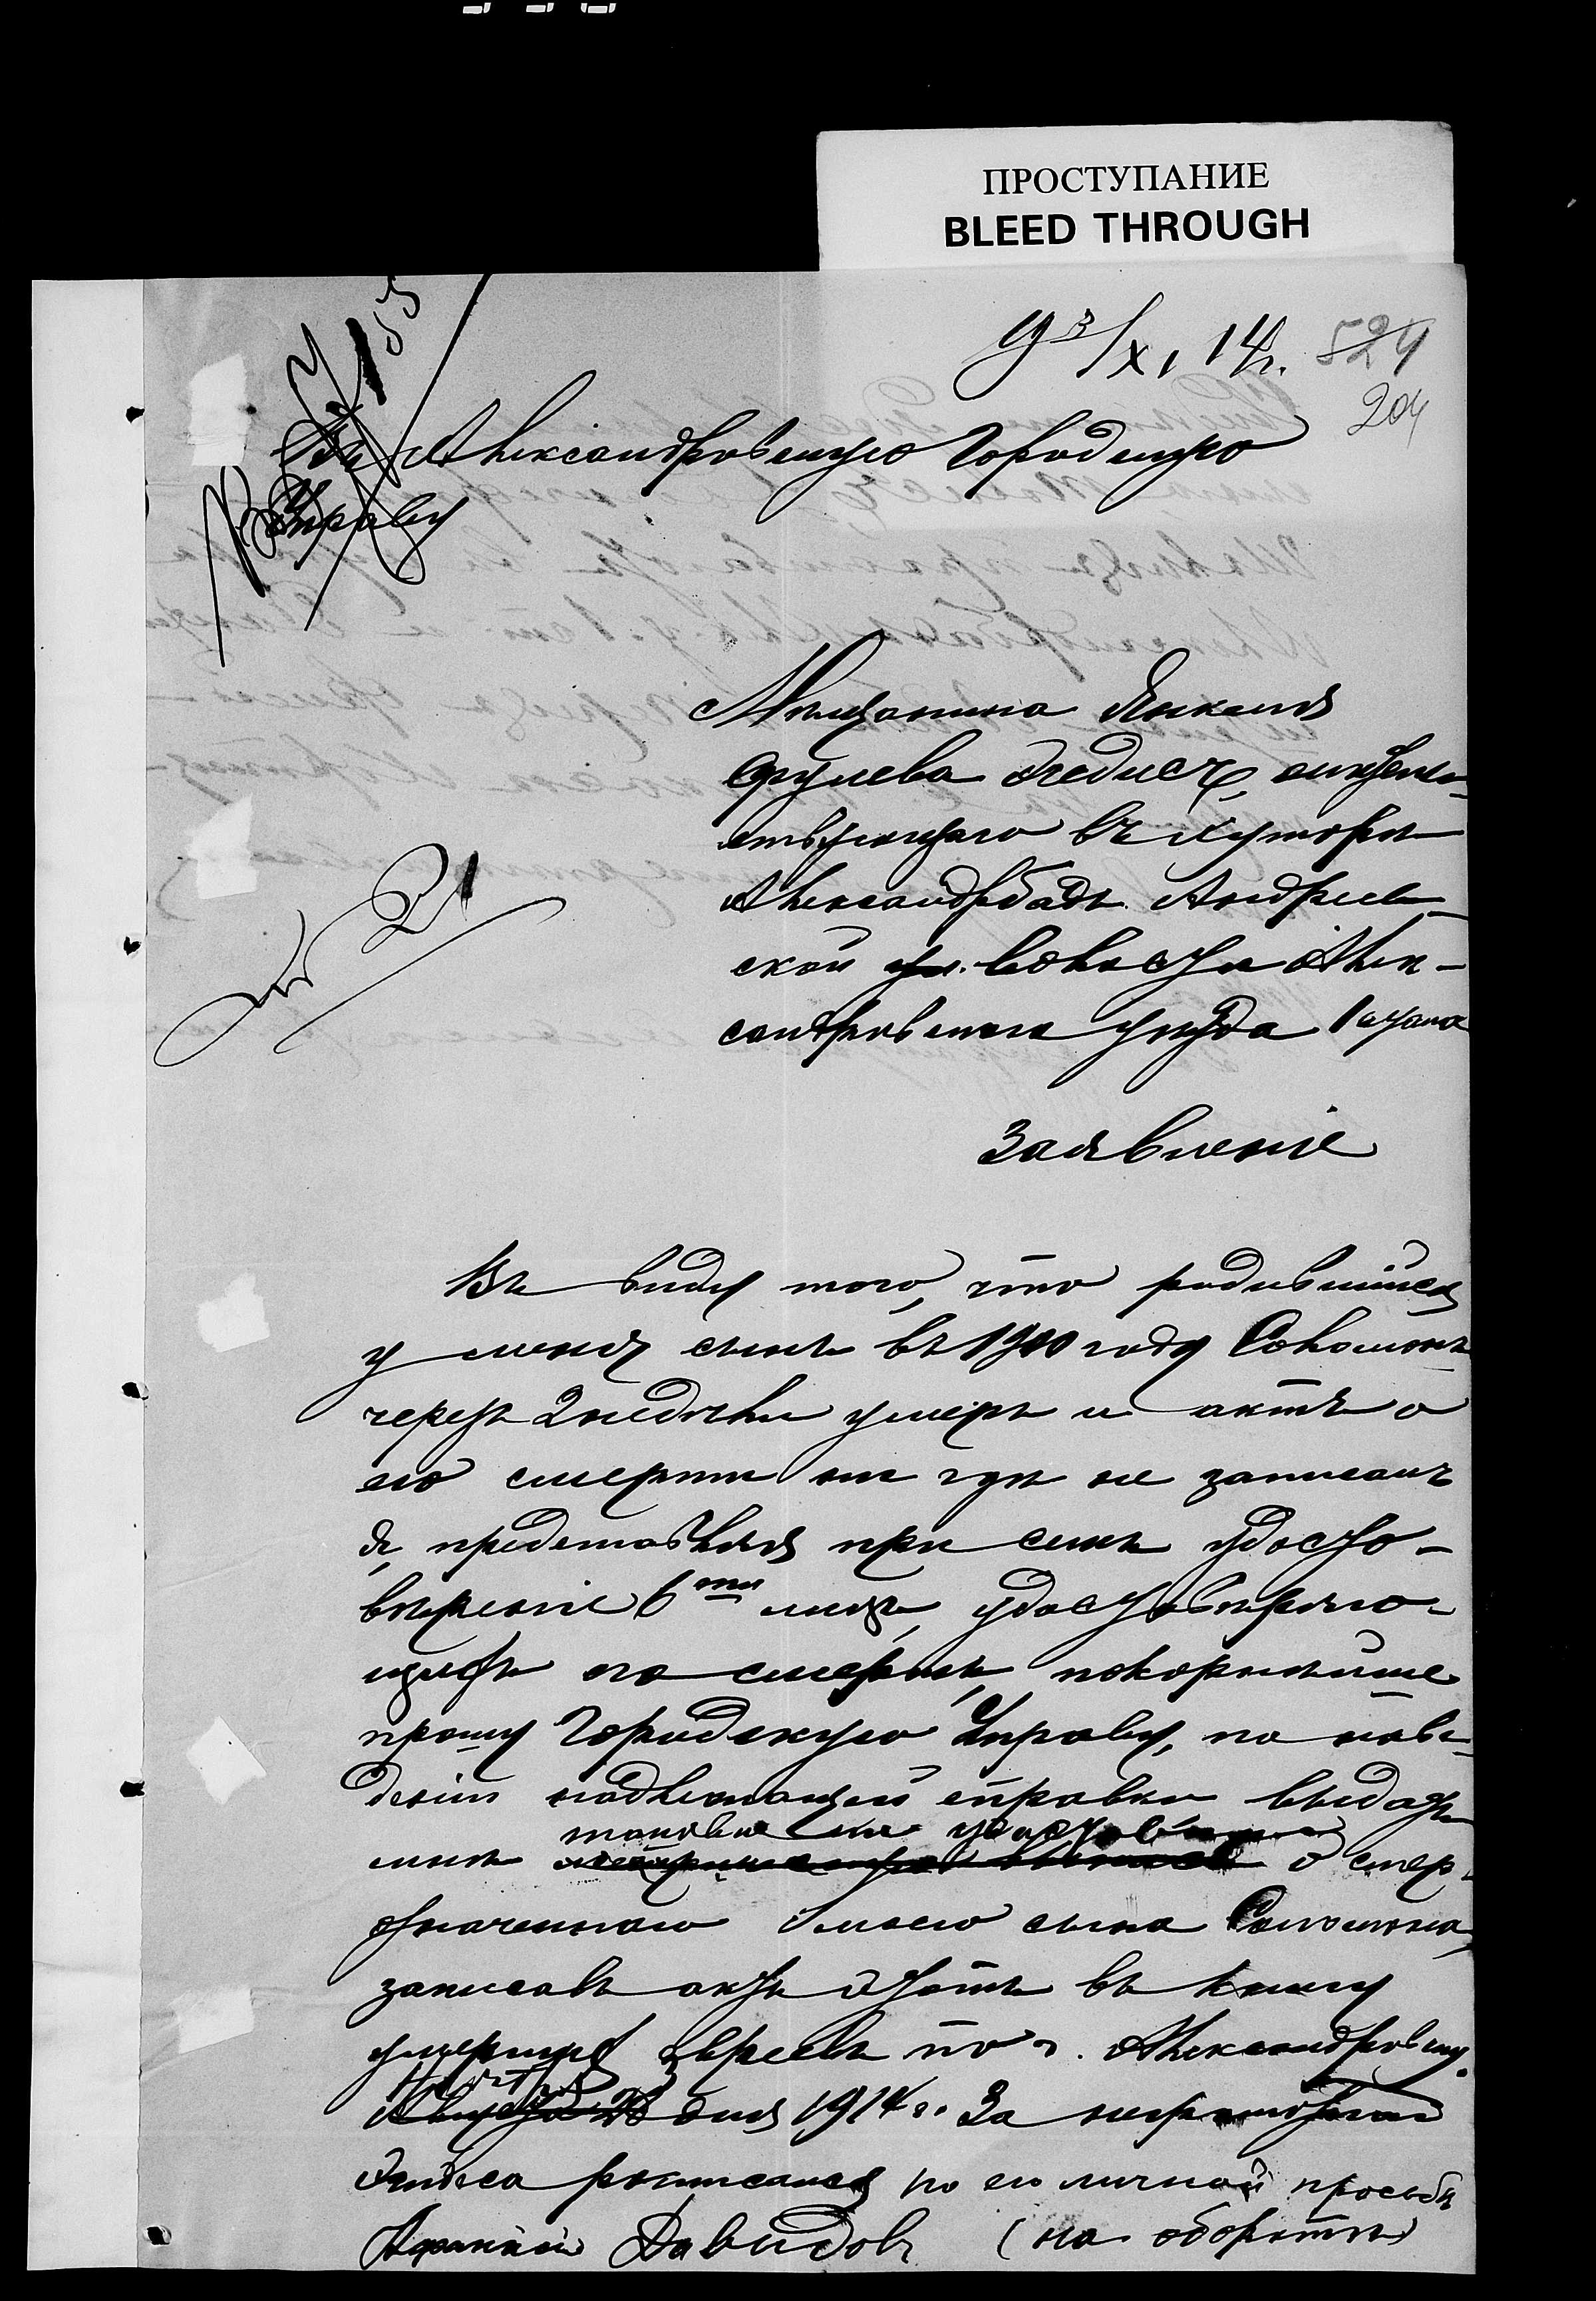 ПРОСТУПАНИЕ
BLEED THROUGH
9 3/XI 14 г. 524
204
Въ Александровскую Городскую
Управу
Мѣщанина Янкеля
Срулева житель
ствующаго въ хуторѣ
Александрбадъ Андреев-
ской ул. волости Алек-
сандровскаго уѣзда 1 стана
Заявленіе
Въ виду того, что родившійся
у меня сынъ въ 1910 году Соломонъ
черезъ 2 недѣли умеръ и актъ о
его смерти ни гдѣ не записанъ
я, представляя при семъ удосто-
вѣреніе 6ти лицъ, удостовѣряю-
щихъ его смерть, покорнѣйше
прошу Городскую Управу, по наве-
деніи надлежащей справки выдать
мнѣ о смер.
означеннаго моего сына Соломона,
записавъ актъ этотъ въ книгу
умершихъ евреевъ по г. Александровску.
Августа дня 1914 г. За неграмотнаго
росписался по его личной просьбѣ
Давидовъ (на оборотѣ)